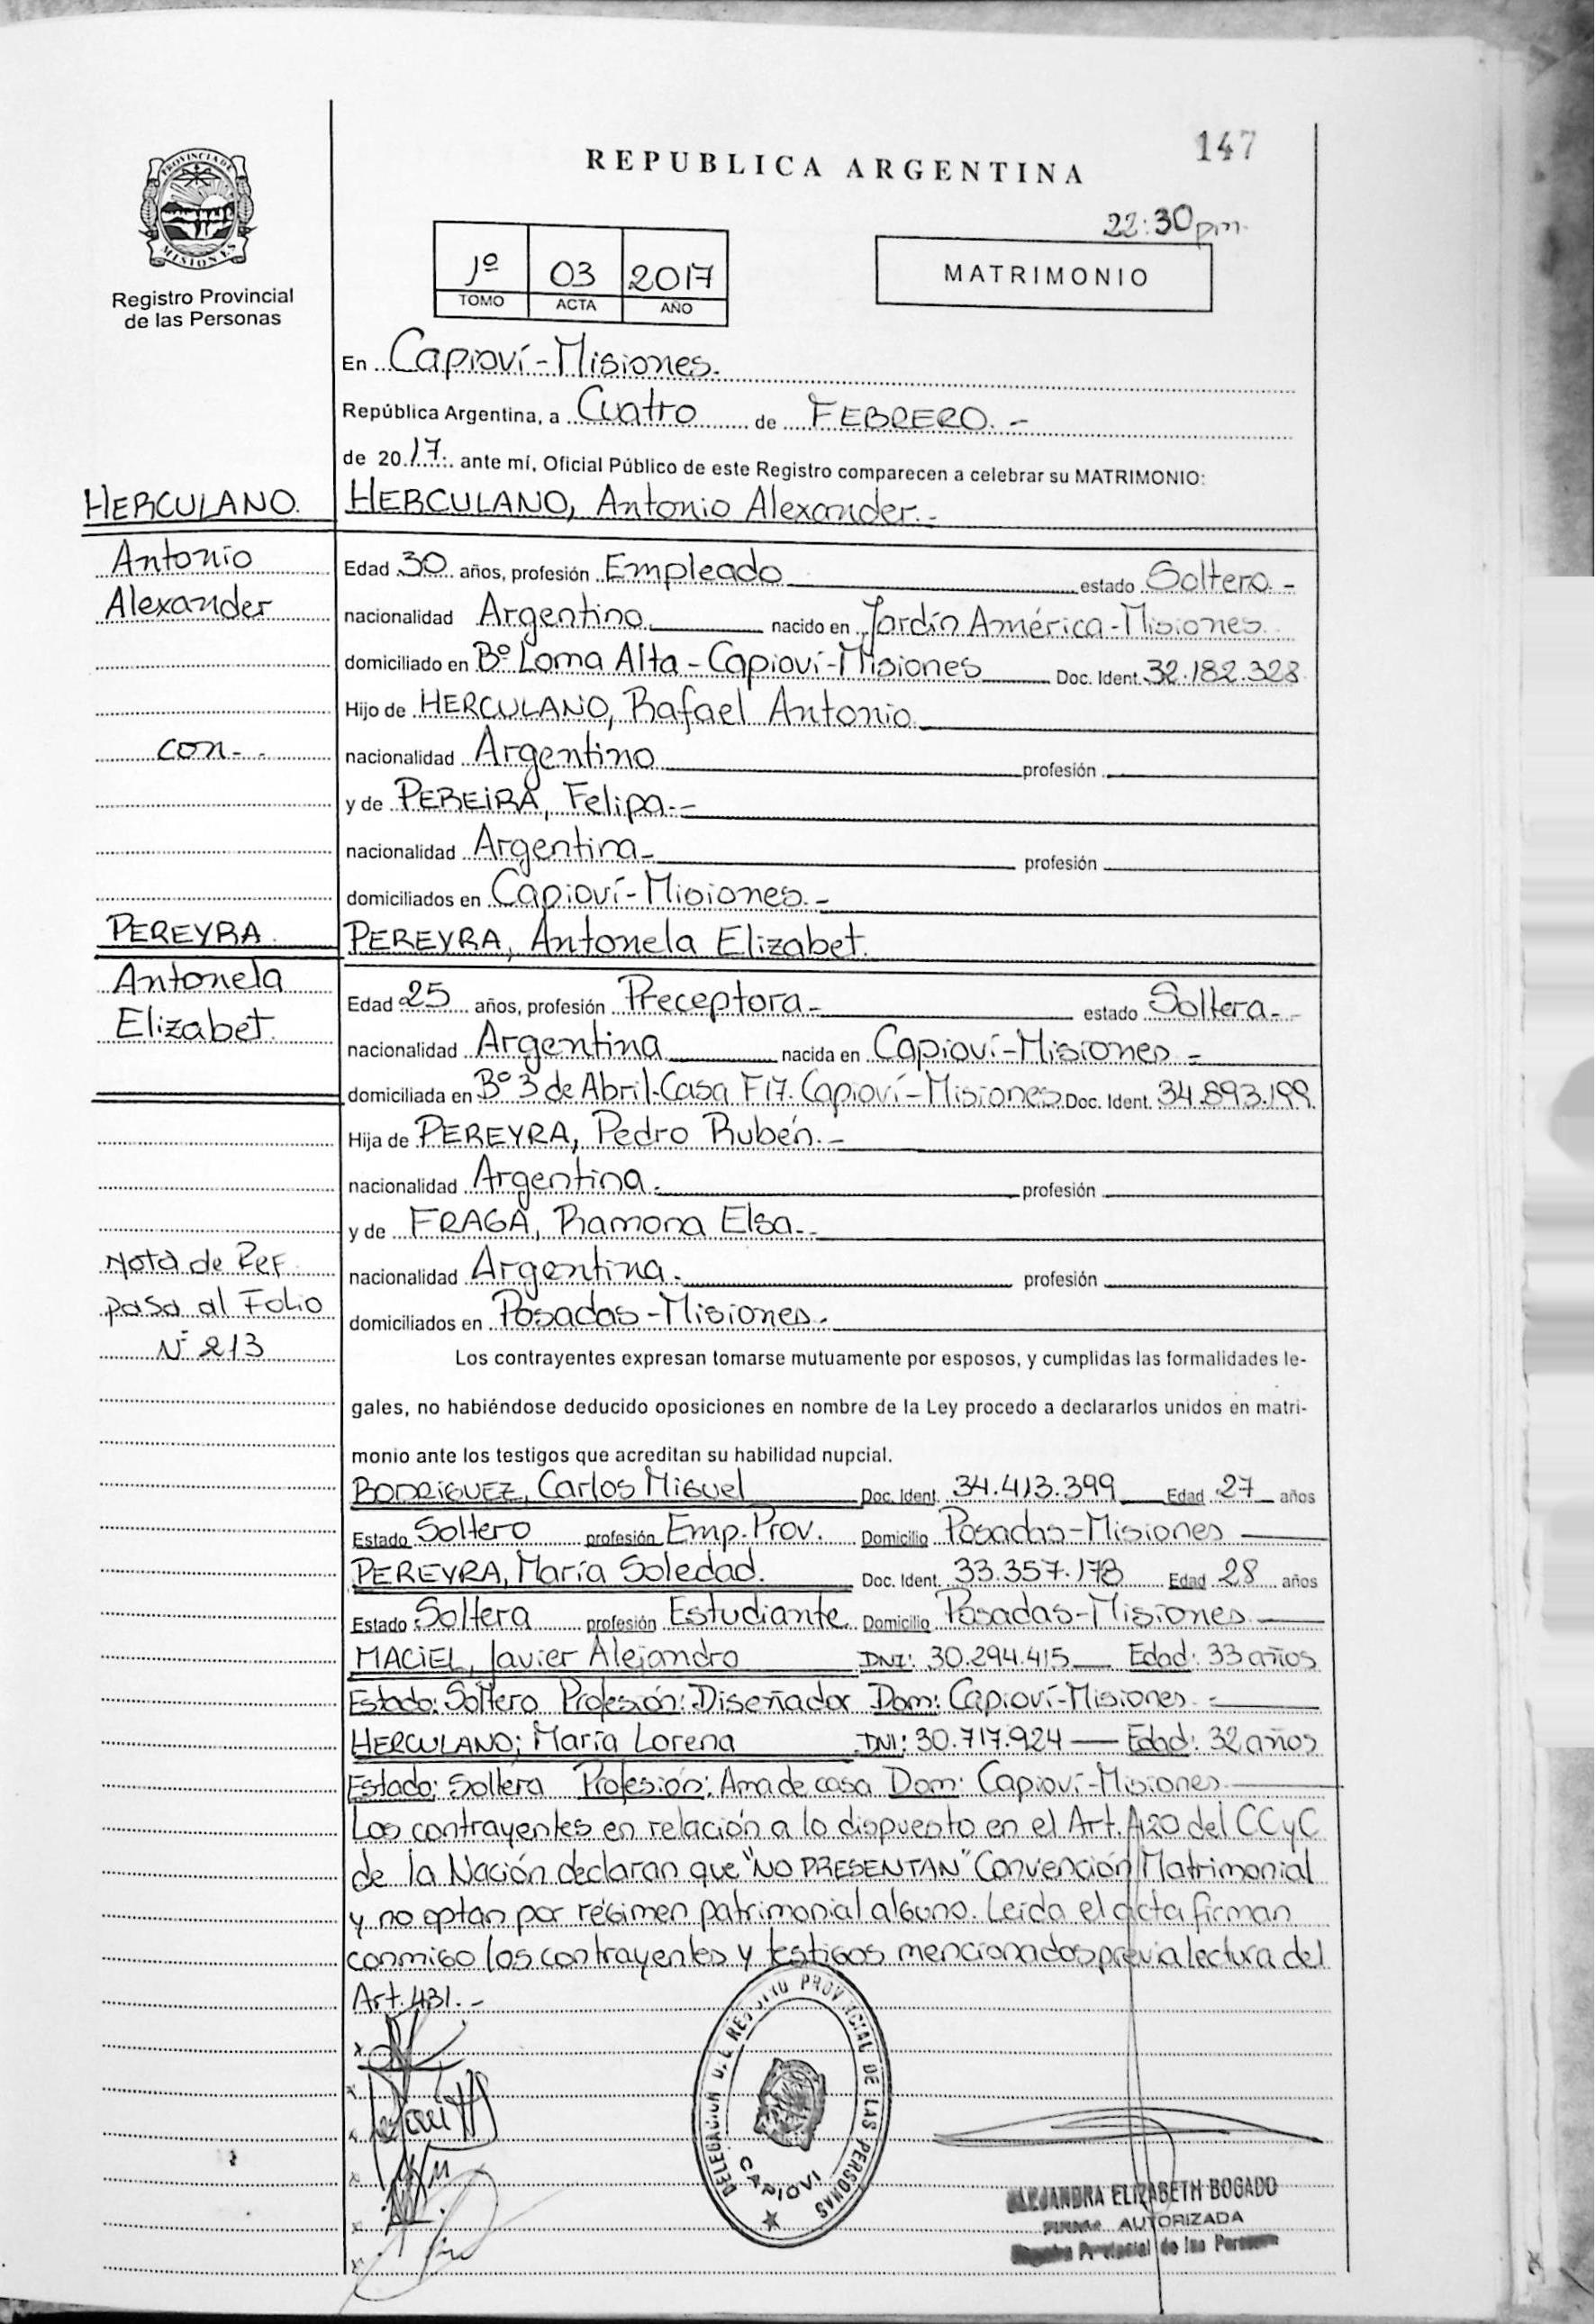 147
REPUBLICA ARGENTINA
22:30 pm.
PROVINCIA DE
MISIONES
Registro Provincial
de las Personas
1º 03 2017
TOMO ACTA AÑO
MATRIMONIO
En Capioví-Misiones.
República Argentina, a Cuatro de FEBRERO.-
de 2017. ante mí, Oficial Público de este Registro comparecen a celebrar su MATRIMONIO:
HERCULANO. HERCULANO, Antonio Alexander.-
Antonio Edad 30 años, profesión Empleado estado Soltero.-
Alexander nacionalidad Argentino. nacido en Jardín América-Misiones.
domiciliado en Bº Loma Alta-Capioví-Misiones Doc. Ident. 32.182.328
Hijo de HERCULANO, Rafael Antonio
con-- nacionalidad Argentino profesión
y de PEREIRA, Felipa.--
nacionalidad Argentina- profesión
domiciliados en Capioví-Misiones.-
PEREYRA. PEREYRA, Antonela Elizabet.
Antonela Edad 25 años, profesión Preceptora- estado Soltera--
Elizabet. nacionalidad Argentina nacida en Capioví-Misiones-
domiciliada en Bº 3 de Abril-Casa F17. Capioví-Misiones. Doc. Ident. 34.893.199.
Hija de PEREYRA, Pedro Rubén.-
nacionalidad Argentina. profesión
y de FRAGA, Ramona Elsa.-
Nota de Ref. nacionalidad Argentina. profesión
pasa al Folio domiciliados en Posadas-Misiones.
Nº 213
Los contrayentes expresan tomarse mutuamente por esposos, y cumplidas las formalidades le-
gales, no habiéndose deducido oposiciones en nombre de la Ley procedo a declararlos unidos en matri-
monio ante los testigos que acreditan su habilidad nupcial.
RODRIGUEZ, Carlos Miguel Doc. Ident. 34.413.399 Edad 27 años
Estado Soltero profesión Emp. Prov. Domicilio Posadas-Misiones
PEREYRA, María Soledad. Doc. Ident. 33.357.178 Edad 28 años
Estado Soltera profesión Estudiante. Domicilio Posadas-Misiones
MACIEL, Javier Alejandro DNI: 30.294.415 Edad: 33 años
Estado: Soltero Profesión: Diseñador Dom: Capioví-Misiones.-
HERCULANO; María Lorena DNI: 30.717.924 Edad: 32 años
Estado: Soltera Profesión: Ama de casa Dom: Capioví-Misiones
Los contrayentes en relación a lo dispuesto en el Art. 420 del CCyC
de la Nación declaran que "NO PRESENTAN" Convención Matrimonial
y no optan por régimen patrimonial alguno. Leída el acta firman
conmigo los contrayentes y testigos mencionados previa lectura del
Art. 431.-
DELEGACION REGISTRO PROVINCIAL DE LAS PERSONAS
CAPIOVI
ALEJANDRA ELIZABETH BOGADO
AUTORIZADA
Registro Provincial de las Personas